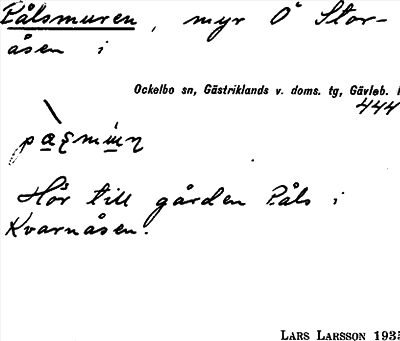 Pålsmuren, myr Ö Stor-
åsen i
Ockelbo sn, Gästriklands v. doms. tg, Gävleb. l
444
Hör till gården Påls i
Kvarnåsen.
LARS LARSSON 1935